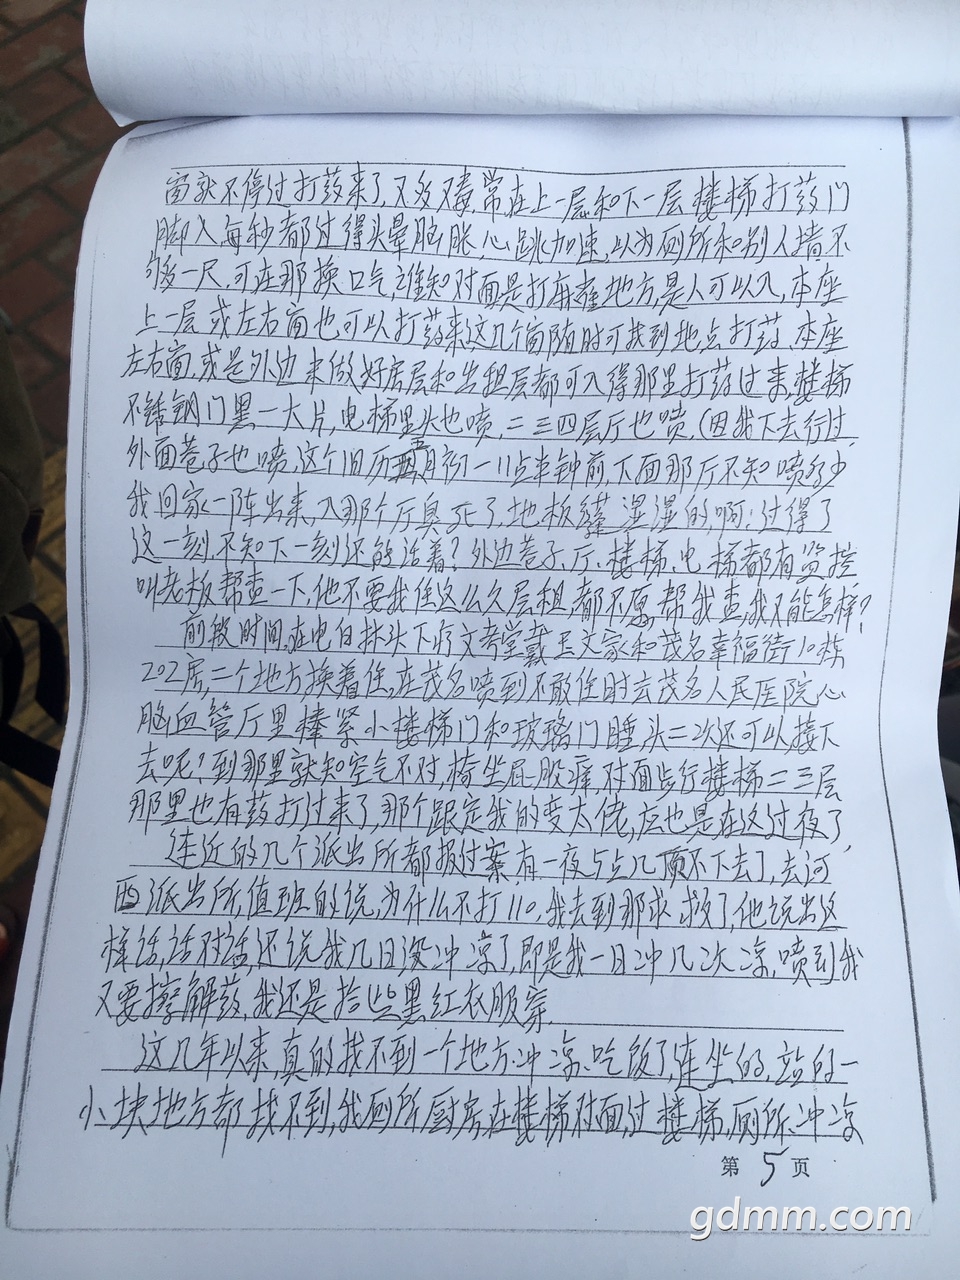 窗就不停过打药来了,又多又毒,常在上一层和下一层楼梯打药门
脚入,每秒都过得头晕脑胀,心跳加速,以为厕所和别人墙不
够一尺,可在那换口气,谁知对面是打麻雀地方,是人可以入,本座
上一层或左右窗也可以打药来这几个窗随时可找到地点打药,本座
左右窗,或是外边未做好房层和出租层都可入得那里打药过来,楼梯
不锈钢门黑一大片,电梯里头也喷,二三四层厅也喷,(因我下去行过,
外面巷子也喷,这个旧历五月初一11点半钟前,下面那厅不知喷多少
我回家一阵出来,入那个厅臭死了,地板湿湿的,啊:过得了
这一刻不知下一刻还能活着?外边巷子、厅、楼梯、电梯都有监控,
叫老板帮查一下,他不要我住这么久层租,都不愿帮我查,我又能怎样?
前段时间,在电白林头下疗文考堂戴玉文家和茂名幸福街10栋
202房,二个地方换着住,在茂名喷到不敢住时去茂名人民医院心
脑血管厅里棒紧小楼梯门和玻璃门睡,头二次还可以接下
去呢?到那里就知空气不对,椅坐屁股痒,对面步行楼梯二三层
那里也有药打过来了,那个跟定我的变太佬,应也是在这过夜了,
连近的几个派出所都报过案,有一夜5点几顶不下去了,去河
西派出所,值班的说,为什么不打110,我去到那求救了,他说出这
样话,话对话,还说我几日没冲凉了,即是我一日冲几次凉,喷到我
又要擦解药,我还是拾些黑红衣服穿,
这几年以来,真的找不到一个地方冲凉、吃饭了,连坐的,站的一
小块地方都找不到,我厕所厨房在楼梯对面,过楼梯,厕所、冲凉
第5页
gdmm.com